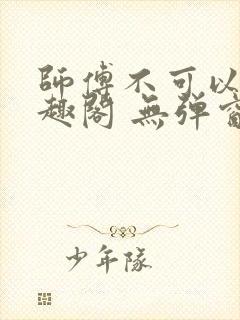 師傅不可以
趣閣 無彈窗
少年隊